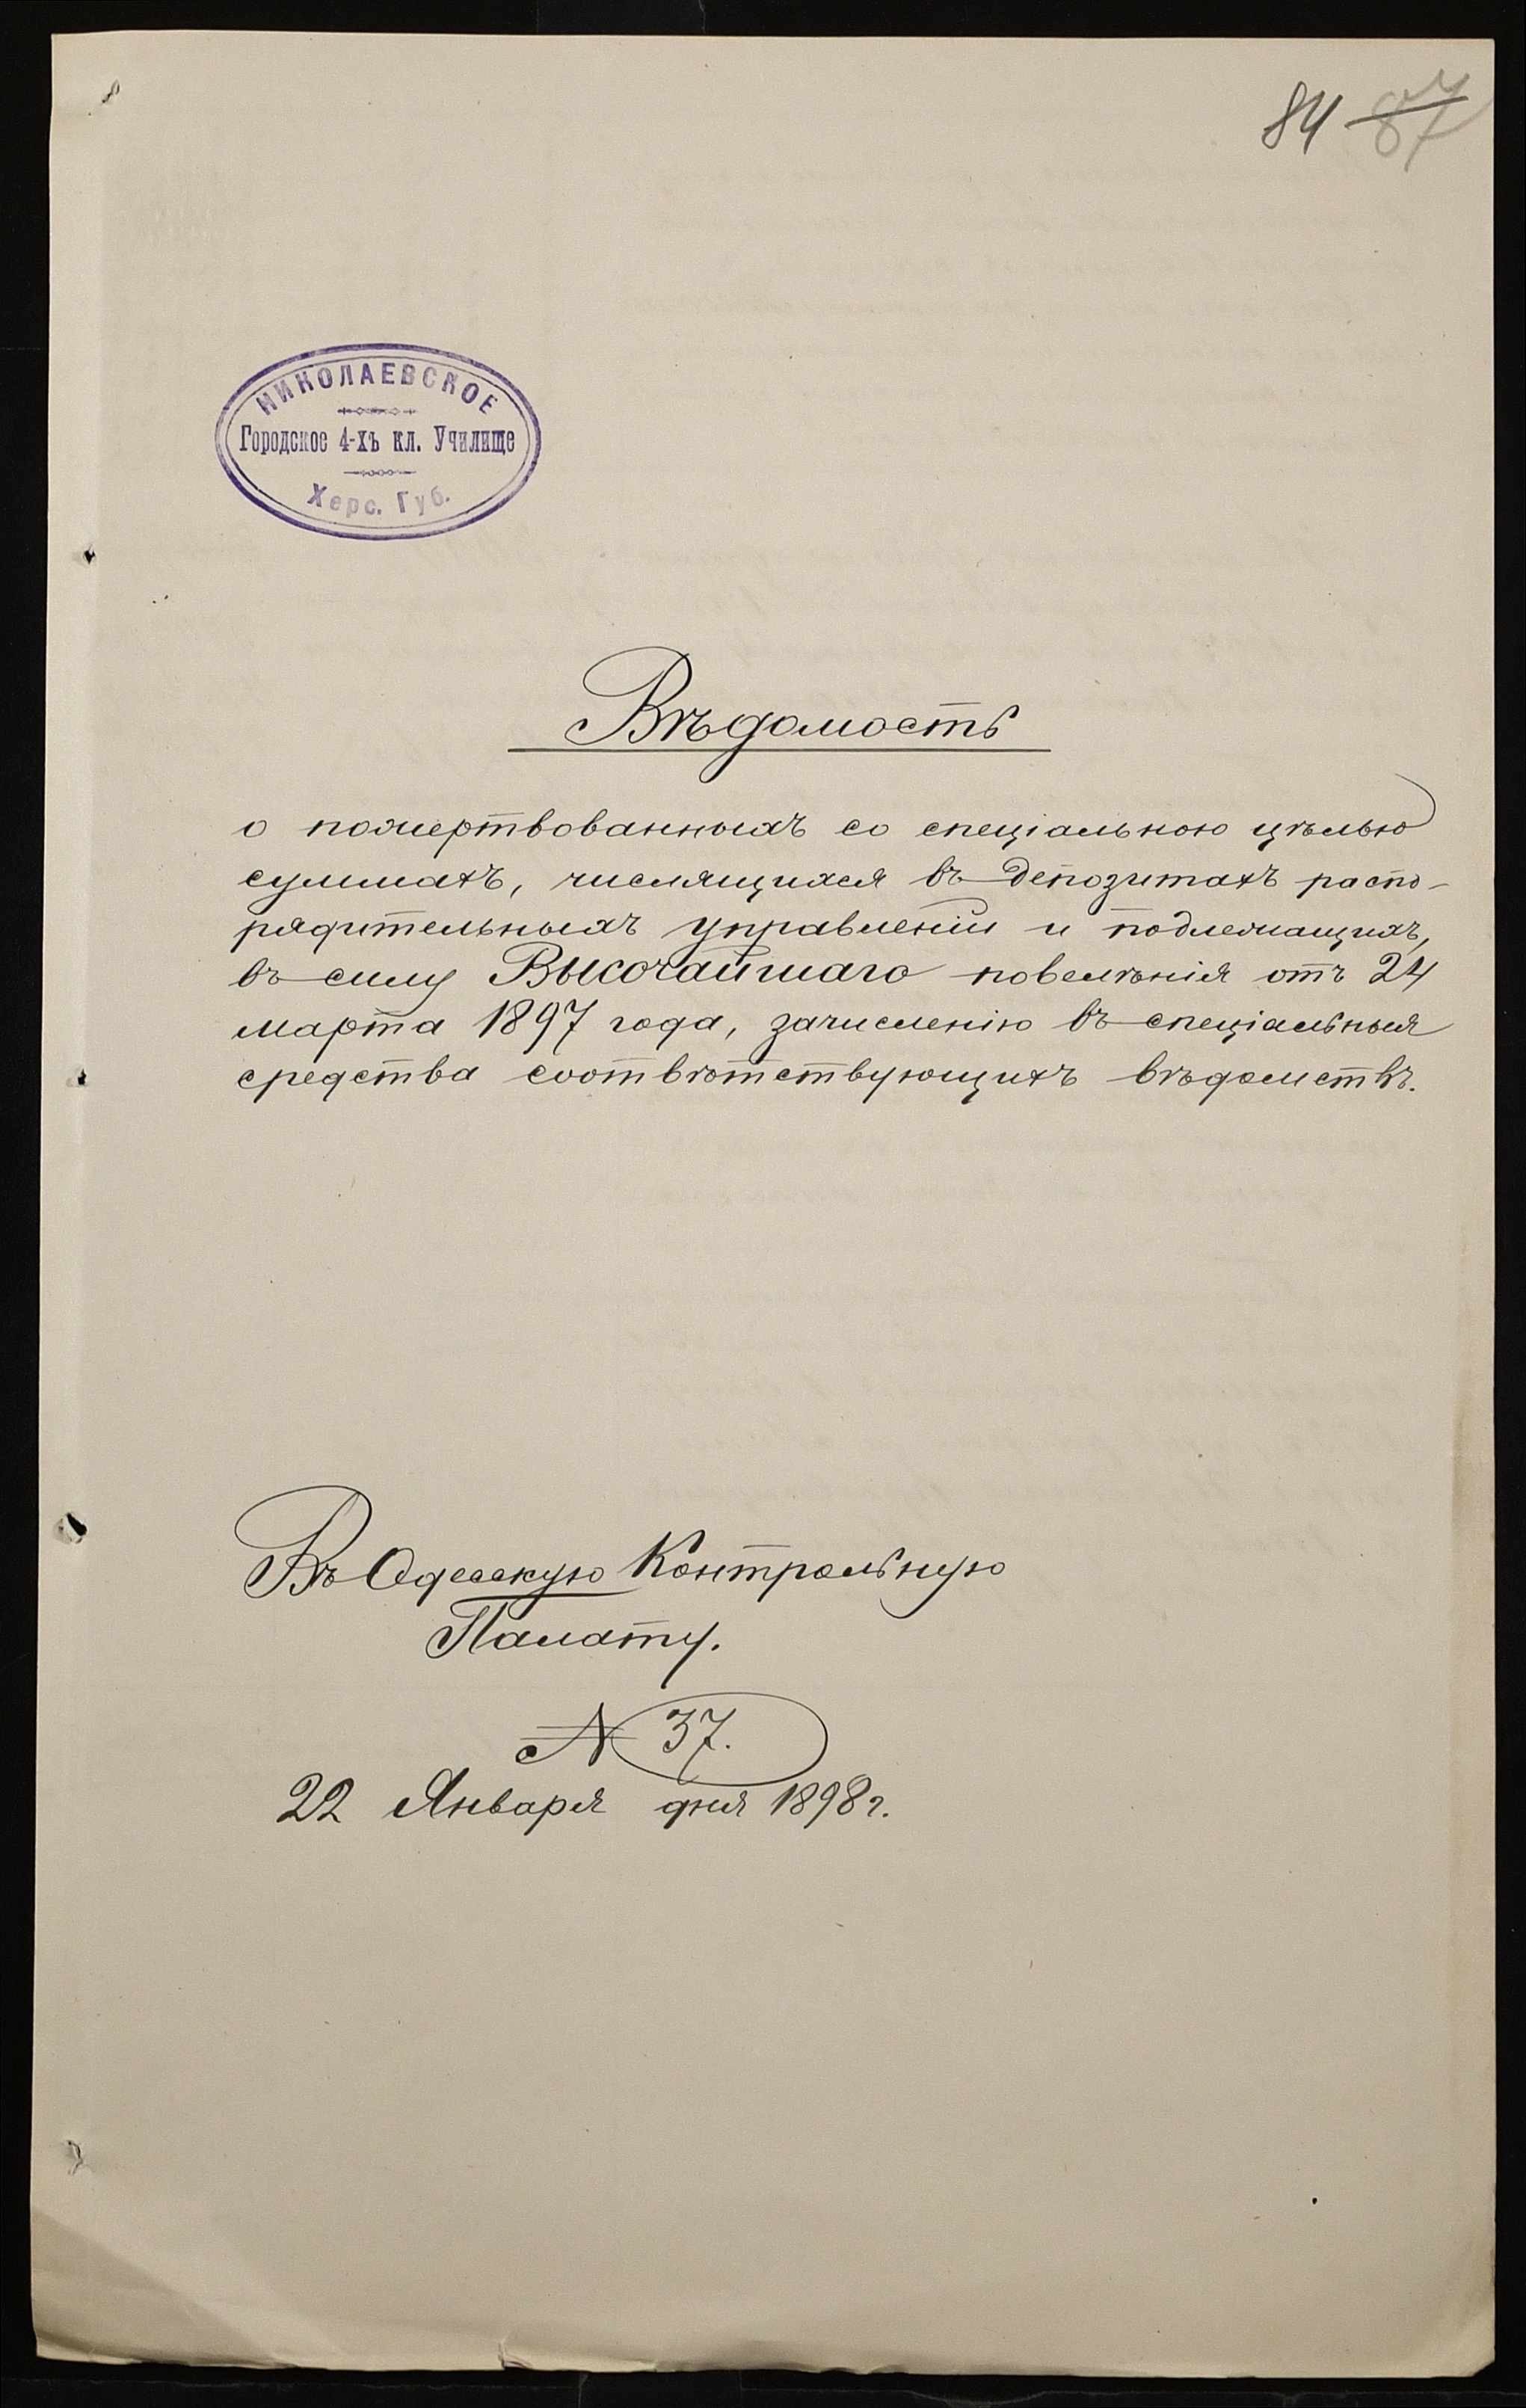 84 87
НИКОЛАЕВСКОЕ
Городское 4-хъ кл. Училище
Херс. Губ.
Вѣдомость
о пожертвованныхъ со спеціальною цѣлью
суммахъ, числящихся въ депозитахъ распо-
рядительныхъ управленій и подлежащихъ,
въ силу Высочайшаго повелѣнія отъ 24
марта 1897 года, зачисленію въ спеціальныя
средства соотвѣтствующихъ вѣдомствъ.
Въ Одесскую Контрольную
Палату.
№ 37.
22 Января дня 1898 г.